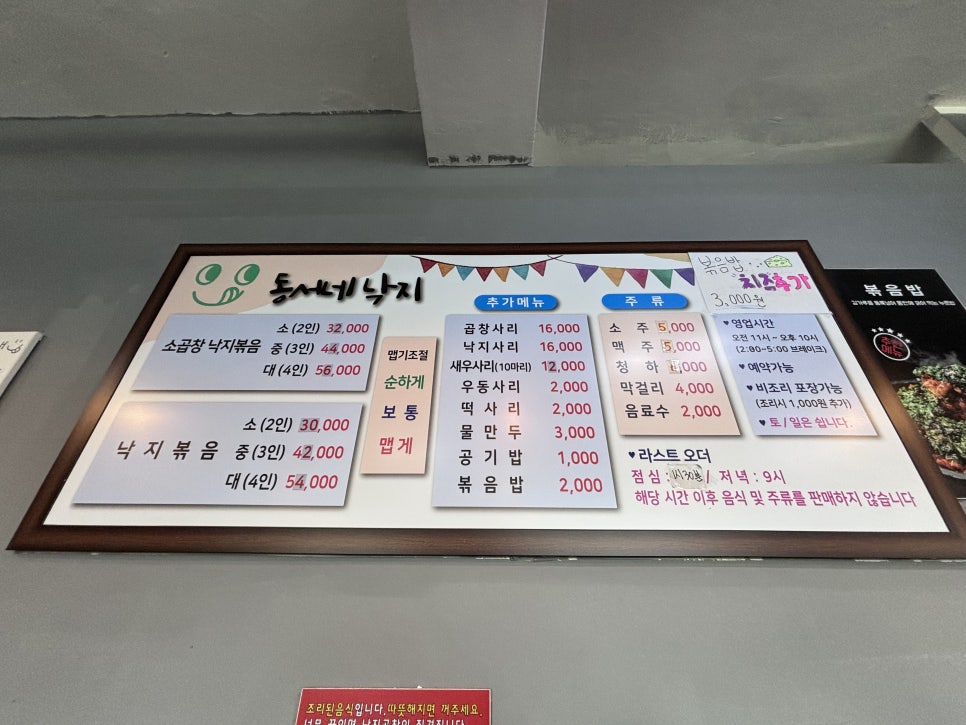 동서네 낙지
소곱창 낙지볶음
소 (2인) 32,000
중 (3인) 44,000
대 (4인) 56,000
낙지볶음
소 (2인) 30,000
중 (3인) 42,000
대 (4인) 54,000
맵기조절
순하게
보통
맵게
추가메뉴
곱창사리 16,000
낙지사리 16,000
새우사리(10마리) 12,000
우동사리 2,000
떡사리 2,000
물만두 3,000
공기밥 1,000
볶음밥 2,000
주류
소주 5,000
맥주 5,000
청하
막걸리 4,000
음료수 2,000
볶음밥
치즈추가
3,000원
♥영업시간
오전 11시~오후 10시
(2:80~5:00 브레이크)
♥예약가능
♥비조리 포장가능
(조리시 1,000원 추가)
♥토/일은 쉽니다.
♥라스트 오더
점심: 1시30분 / 저녁: 9시
해당 시간 이후 음식 및 주류를 판매하지 않습니다
볶음밥
추천
메뉴
조리된음식입니다.따뜻해지면 꺼주세요.